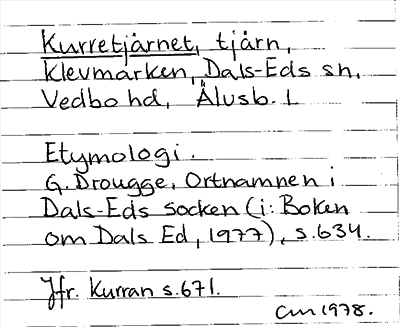 Kurretjärnet, tjärn,
Klevmarken, Dals-Eds sn,
Vedbo hd, Älvsb. l
Etymologi.
G. Drougge, Ortnamnen i
Dals-Eds socken (i: Boken
om Dals Ed, 1977), s.634.
Jfr. Kurran s.671.
CM 1978.